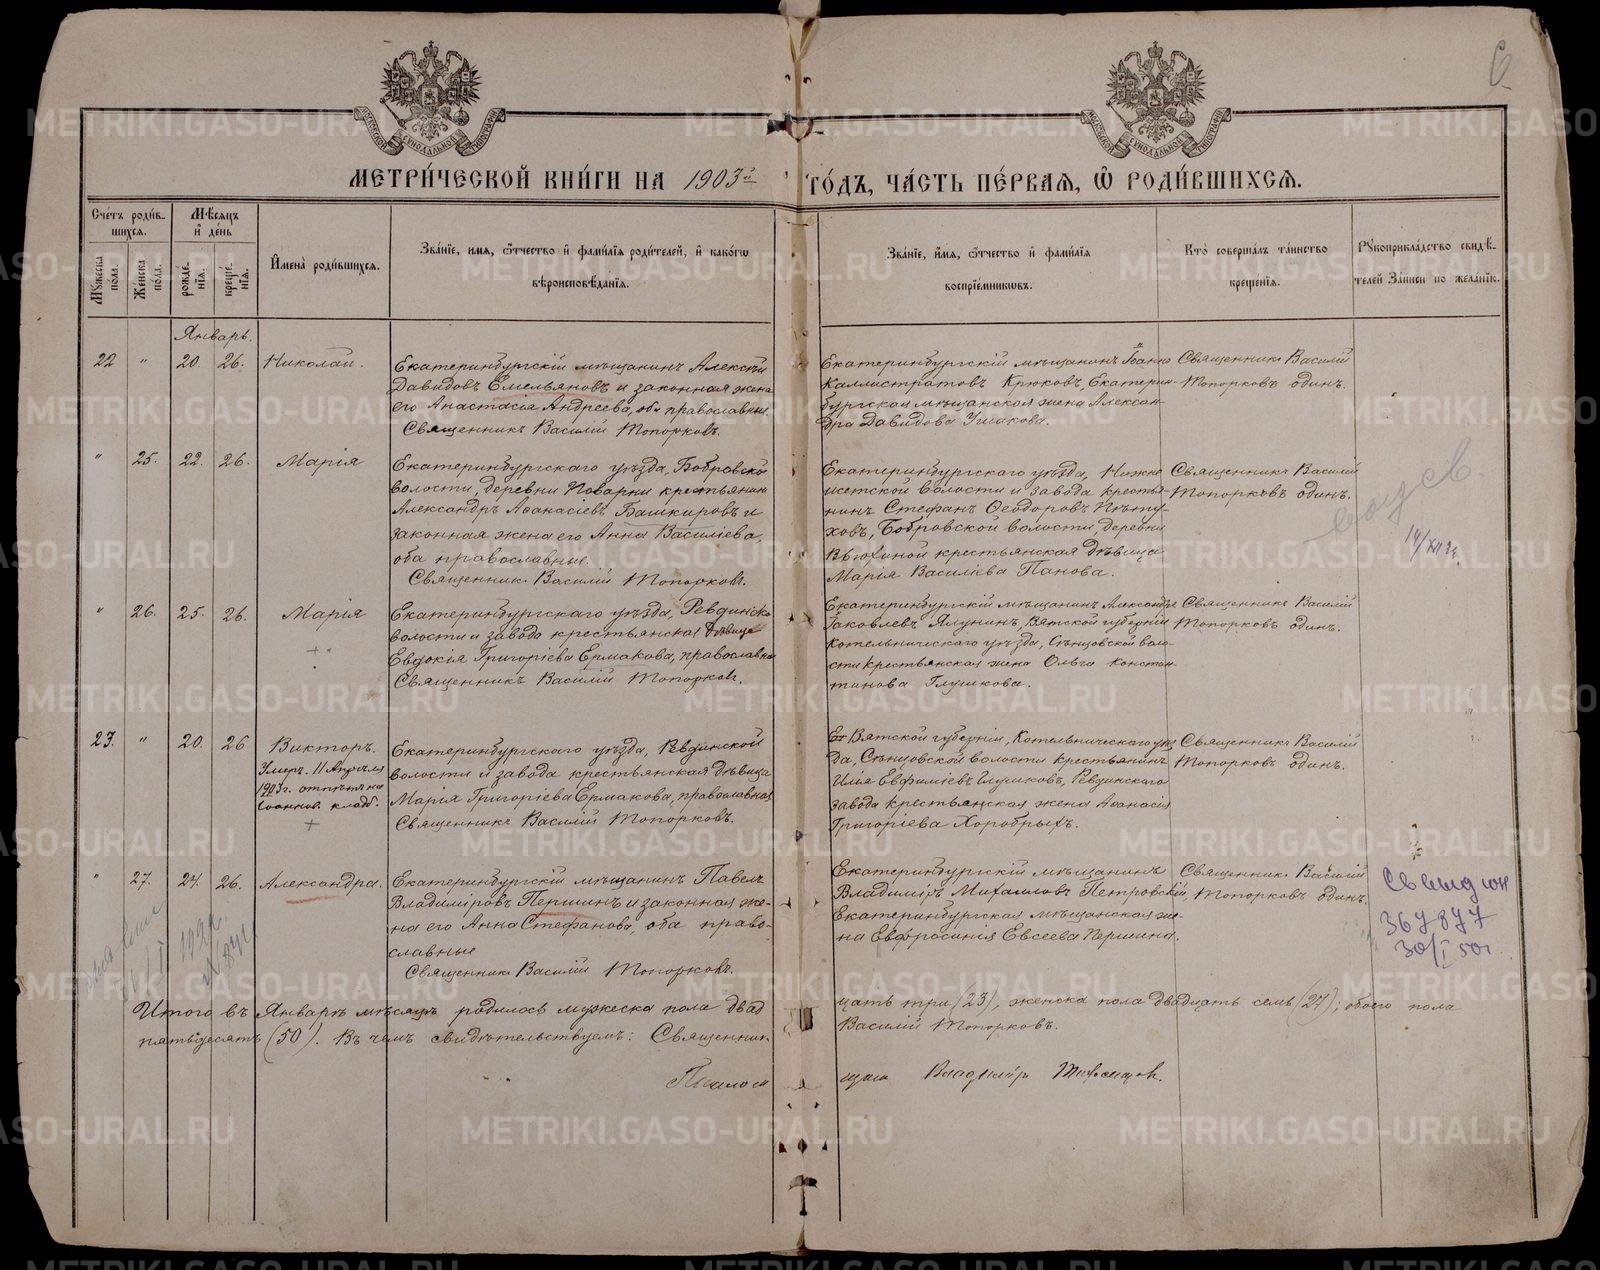 МЕТРИ́ЧЕСКОЙ КНИ́ГИ НА 1903й ГО́ДЪ, ЧА́СТЬ ПЕ́РВАЯ, Ѡ РОДИ́ВШИХСЯ.
Сче́тъ роди́в-
шихся.
Мѣ́сяцъ
и де́нь
Мꙋ́жеска
пола.
Же́нска
пола.
рожде́-
нїя.
креще́-
нїя.
И́мена̀ роди́вшихся.
Зва́нїе, имя, ѻ҆́тчество и҆ фами́лїя роди́телей, и҆ како́гѡ
вѣроисповѣ́данїя.
Зва́нїе, и҆́мя, ѻ҆́тчество и҆ фами́лїя
воспрїе́мникѡвъ.
Кто̀ соверша́лъ та́инство
креще́нїя.
Рꙋкоприкла́дство свидѣ́-
телей За́писи по жела́нїю.
Январь.
22 " 20. 26. Николай.
Екатеринбургскій мѣщанинъ Алексѣй
Давидовъ Емельяновъ и законная жена
его Анастасія Андреева, оба православные.
Священникъ Василій Топорковъ.
Екатеринбургскій мѣщанинъ Іоаннъ
Каллистратовъ Крюковъ, Екатерин-
бургская мѣщанская жена Алексан-
дра Давидова Ушакова.
Священникъ Василій
Топорковъ одинъ.
" 25. 22. 26. Марія
Екатеринбургскаго уѣзда, Бобровской
волости, деревни Поварни крестьянинъ
Александръ Аѳанасіевъ Башкировъ и
законная жена его Анна Василіева,
оба православные.
Священникъ Василій Топорковъ.
Екатеринбургскаго уѣзда, Нижне
исетской волости и завода крестья-
нинъ Стефанъ Ѳеодоровъ Пѣту-
ховъ, Бобровской волости, деревни
Вьюхиной крестьянская дѣвица
Марія Василіева Панова.
Священникъ Василій
Топорковъ одинъ.
" 26. 25. 26. Марія
Екатеринбургскаго уѣзда, Ревдинской
волости и завода крестьянская дѣвица
Евдокія Григоріева Ермакова, православная
Священникъ Василій Топорковъ.
Екатеринбургскій мѣщанинъ Александръ
Іаковлевъ Ялунинъ, Вятской губерніи
Котельническаго уѣзда, Сѣнцовской воло-
сти крестьянская жена Ольга Констан-
тинова Глушкова.
Священникъ Василій
Топорковъ одинъ.
23. " 20. 26 Викторъ.
Умеръ. 11 Апрѣля
1903г. отпѣтъ на
Іоаннов. кладб.
Екатеринбургскаго уѣзда, Ревдинской
волости и завода крестьянская дѣвица
Марія Григоріева Ермакова, православная
Священникъ Василій Топорковъ.
Вятской губерніи, Котельническаго уѣз
да, Сѣнцовской волости крестьянинъ
Илія Евфиміевъ Глушковъ, Ревдинскаго
завода крестьянская жена Аѳанасія
Григоріева Хоробрыхъ.
Священникъ Василій
Топорковъ одинъ.
" 27. 24. 26. Александра.
Екатеринбургскій мѣщанинъ Павелъ
Владиміровъ Першинъ и законная же-
на его Анна Стефанова, оба право-
славные
Священникъ Василій Топорковъ.
Екатеринбургскій мѣщанинъ
Владиміръ Михаиловъ Петровскій,
Екатеринбургская мѣщанская же-
на Евфросинія Евсеева Першина.
Священникъ Василій
Топорковъ одинъ.
367877
30/I 50г.
Итого въ Январѣ мѣсяцѣ родилось мужеска пола двад
цать три (23), женска пола двадцать семь (27); обоего пола
пятьдесятъ (50). Въ чемъ свидѣтельствуемъ: Священникъ
Василій Топорковъ.
Псалом
щикъ Владиміръ
METRIKI.GASO-URAL.RU